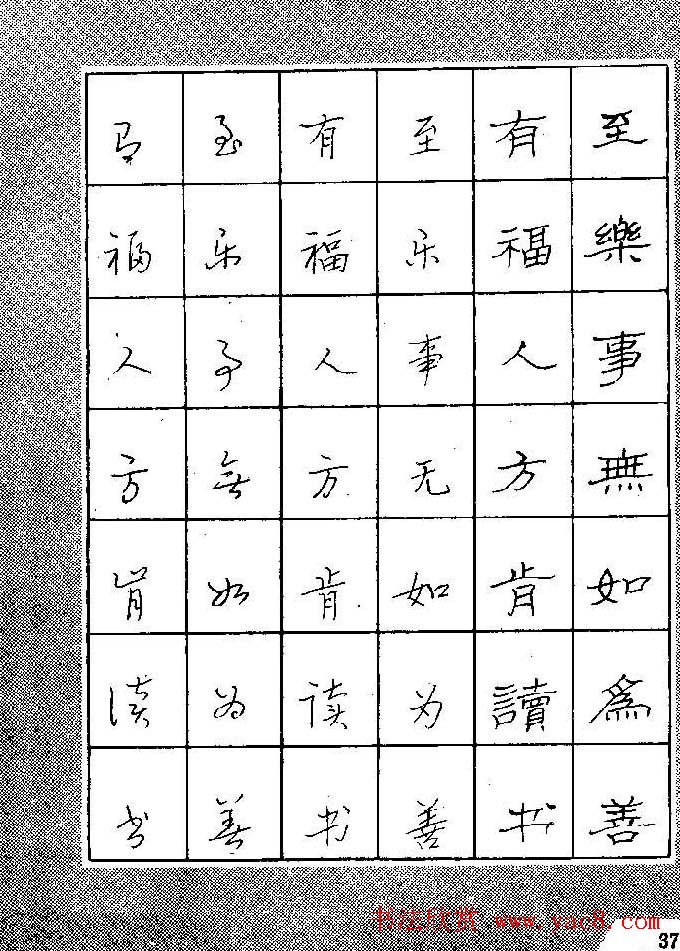 至樂事無如爲善
有福人方肯讀书
至乐事无如为善
有福人方肯读书
至乐事無如为善
有福人方肯读书
书法欣赏 www.yac8.com
37